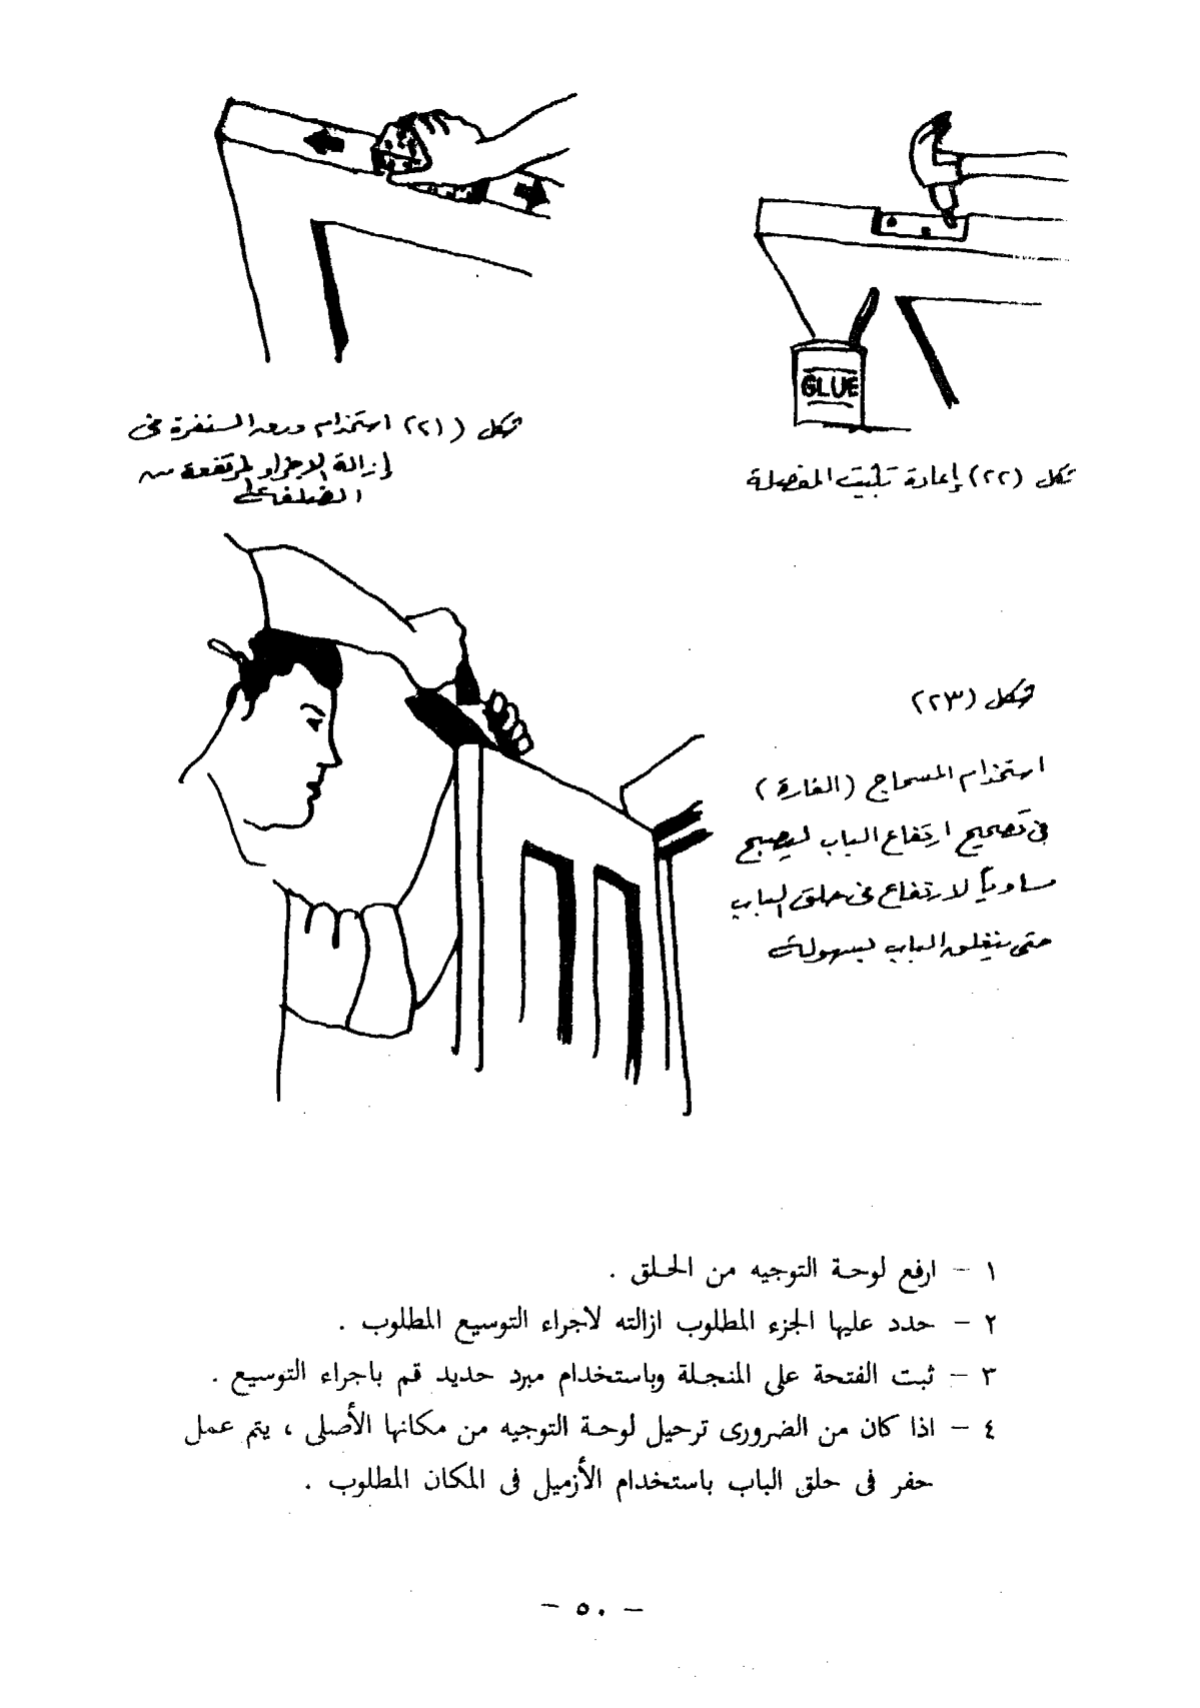 شكل (٢١) استخدام ورق السنفرة فى
إزالة الاجزاء المرتفعة من
الضلفة
GLUE
شكل (٢٢) إعادة تثبيت المفصلة
شكل (٢٣)
استخدام المسحاج (الفارة)
فى تصحيح ارتفاع الباب ليصبح
مساوياً لارتفاع فى حلق الباب
حتى ينغلق الباب بسهولة
١ - ارفع لوحة التوجيه من الحلق .
٢ - حدد عليها الجزء المطلوب ازالته لاجراء التوسيع المطلوب .
٣ - ثبت الفتحة على المنجلة وباستخدام مبرد حديد قم باجراء التوسيع .
٤ - اذا كان من الضرورى ترحيل لوحة التوجيه من مكانها الأصلى ، يتم عمل
حفر فى حلق الباب باستخدام الأزميل فى المكان المطلوب .
- ٥٠ -